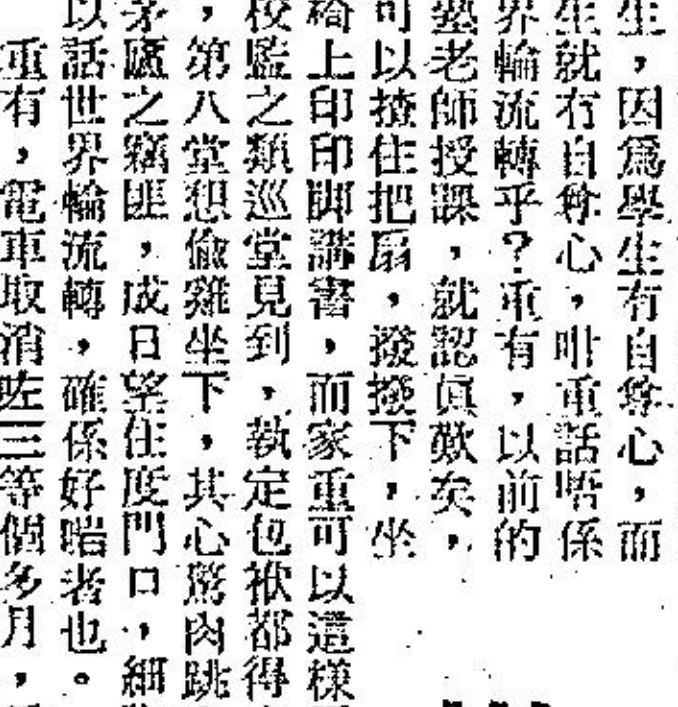 生，因爲學生有自尊心，而
生就冇自尊心，咁重話唔係
界輪流轉乎？重有，以前的
塾老師授課，就認眞歎矣，
可以揸住把扇，撥撥下，坐
椅上印印脚講書，而家重可以這樣
校監之類巡堂見到，執定包袱都得
，第八堂想偷雞坐下，其心驚肉跳
茅廬之竊匪，成日望住度門口，細
以話世界輪流轉，確係好啱者也。
重有，電車取消咗三等個多月，